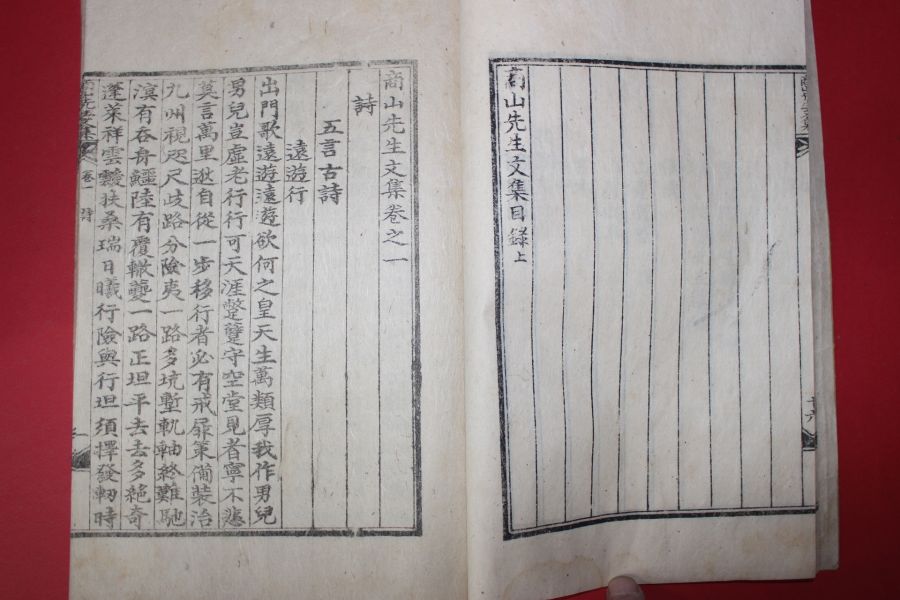 商山先生文集目錄上
商山先生文集卷之一
詩
五言古詩
遠遊行
出門歌遠遊遠遊欲何之皇天生萬類厚我作男兒
男兒豈虛老行行可天涯蹩躄守空堂見者寧不悲
莫言萬里逖自從一步移行者必有戒屝䇿備裝治
九州視咫尺歧路分險夷一路多坑塹軌軸終難馳
溟有吞舟鱷陸有覆轍夔一路正坦平去去多絶奇
蓬萊祥雲靉扶桑瑞日曦行險與行坦須擇發軔時
卷一
詩